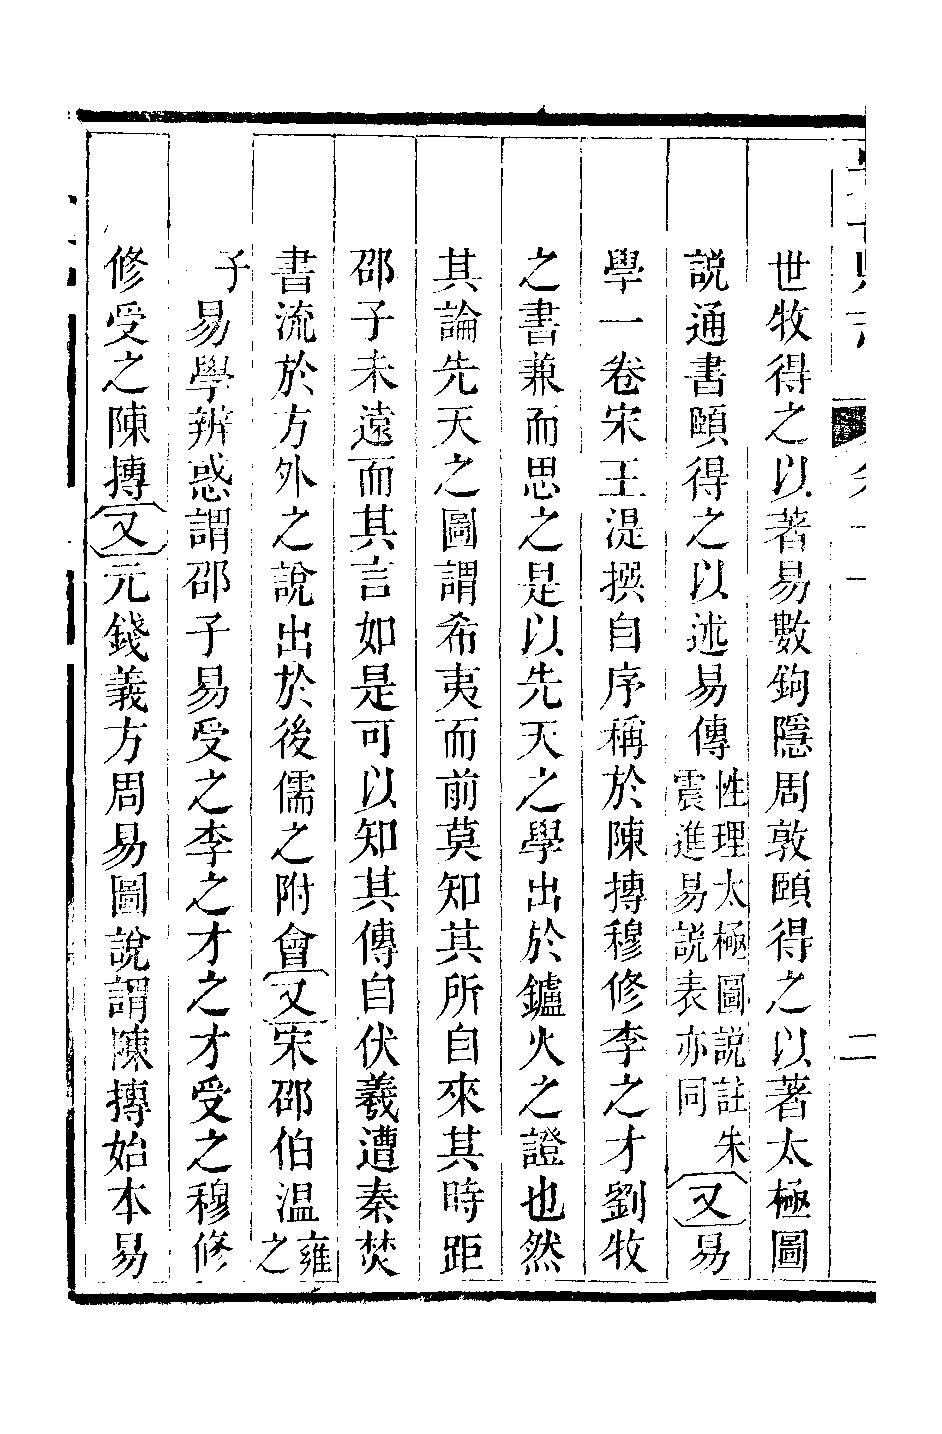 世牧得之以著易數鉤隱周敦頤得之以著太極圖
説通書頤得之以述易傳性理太極圖説註朱震進易説表亦同又易
學一卷宋王湜撰自序稱於陳摶穆修李之才劉牧
之書兼而思之是以先天之學出於鑪火之證也然
其論先天之圖謂希夷而前莫知其所自來其時距
邵子未遠而其言如是可以知其傳自伏羲遭秦焚
書流於方外之說出於後儒之附會又宋邵伯温雍之
子易學辨惑謂邵子易受之李之才之才受之穆修
修受之陳摶又元錢義方周易圖說謂陳摶始本易